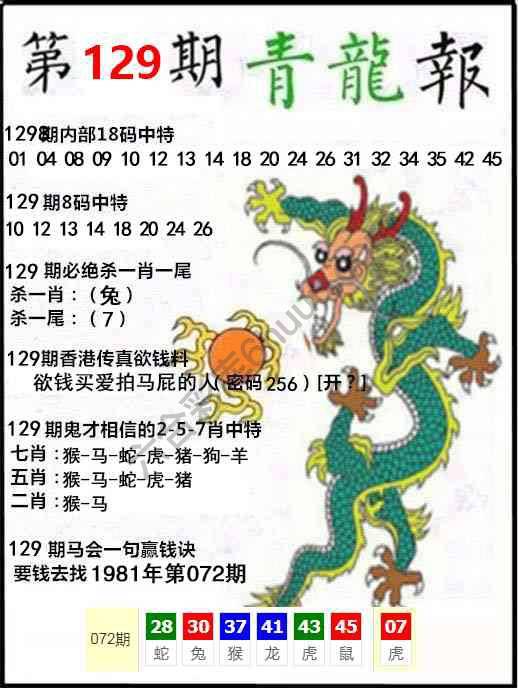 第129期青龍報
129期内部18码中特
01 04 08 09 10 12 13 14 18 20 24 26 31 32 34 35 42 45
129期8码中特
10 12 13 14 18 20 24 26
129期必绝杀一肖一尾
杀一肖：（兔）
杀一尾：（7）
129期香港传真欲钱料
欲钱买爱拍马屁的人(密码256)[开？]
129期鬼才相信的2-5-7肖中特
七肖：猴-马-蛇-虎-猪-狗-羊
五肖：猴-马-蛇-虎-猪
二肖：猴-马
129期马会一句赢钱诀
要钱去找1981年第072期
072期 28 30 37 41 43 45 07
蛇 兔 猴 龙 虎 鼠 虎